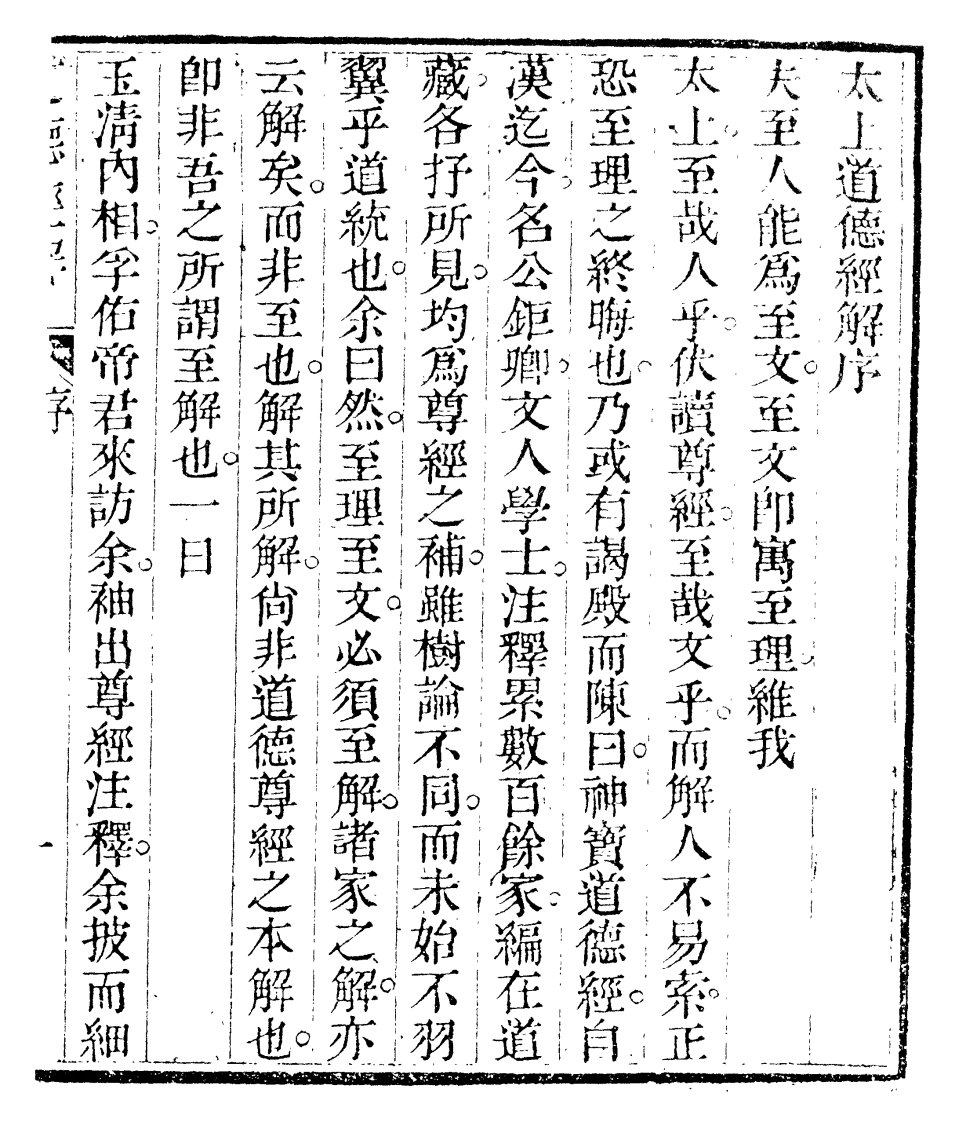 太上道德經解序
夫至人能爲至文。至文卽寓至理。維我
太上。至哉人乎。伏讀尊經。至哉文乎。而解人不易索。正
恐至理之終晦也。乃或有謁殿而陳曰。神寶道德經。自
漢迄今。名公鉅卿。文人學士。注釋累數百餘家。編在道
藏。各抒所見。均爲尊經之補。雖樹論不同。而未始不羽
翼乎道統也。余曰然。至理至文。必須至解。諸家之解。亦
云解矣。而非至也。解其所解。尙非道德尊經之本解也。
卽非吾之所謂至解也。一日
玉淸內相。孚佑帝君來訪余。袖出尊經注釋。余披而細
德經
序
一